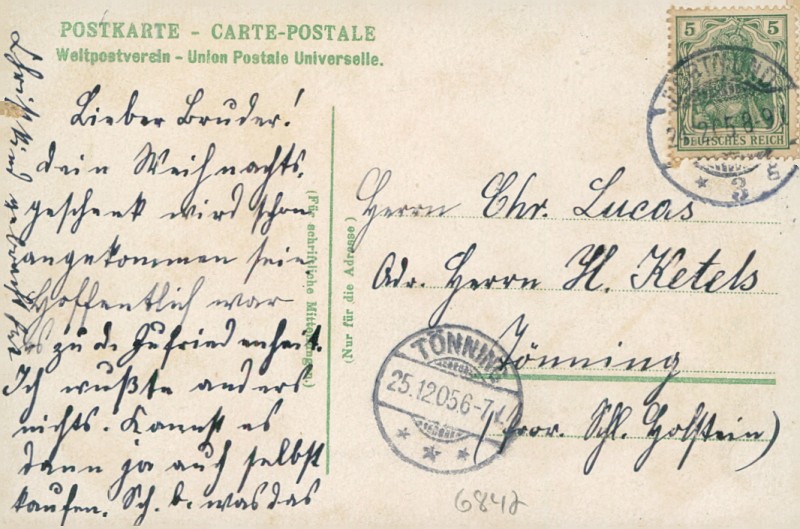 POSTKARTE - CARTE-POSTALE
Weltpostverein - Union Postale Universelle.
Lieber Bruder!
Dein Weihnachts-
geschenk wird schon
angekommen sein.
Hoffentlich war
es zu d. Zufriedenheit.
Ich wußte anders
nichts. Kannst es
dann ja auch selbst
kaufen. Sch. b. was das
(Für schriftliche Mitteilungen)
(Nur für die Adresse)
5 5
DEUTSCHES REICH
DORTMUND
8-9
* 3 g
Herrn Chr. Lucas
Adr. Herrn H. Ketels
Tönning
(Prov. Schl. Holstein)
TÖNNING
25.12.05.6-7
6842